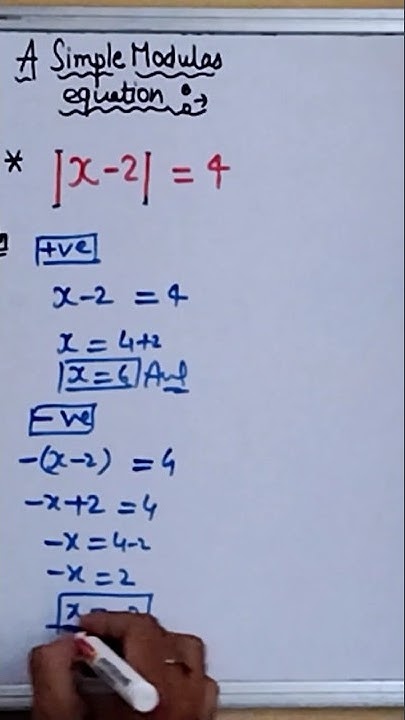 A Simple Modulas
equation :→
* |x-2| = 4
+ve
x-2 = 4
x = 4+2
x = 6 Ans
-ve
-(x-2) = 4
-x+2 = 4
-x = 4-2
-x = 2
x =